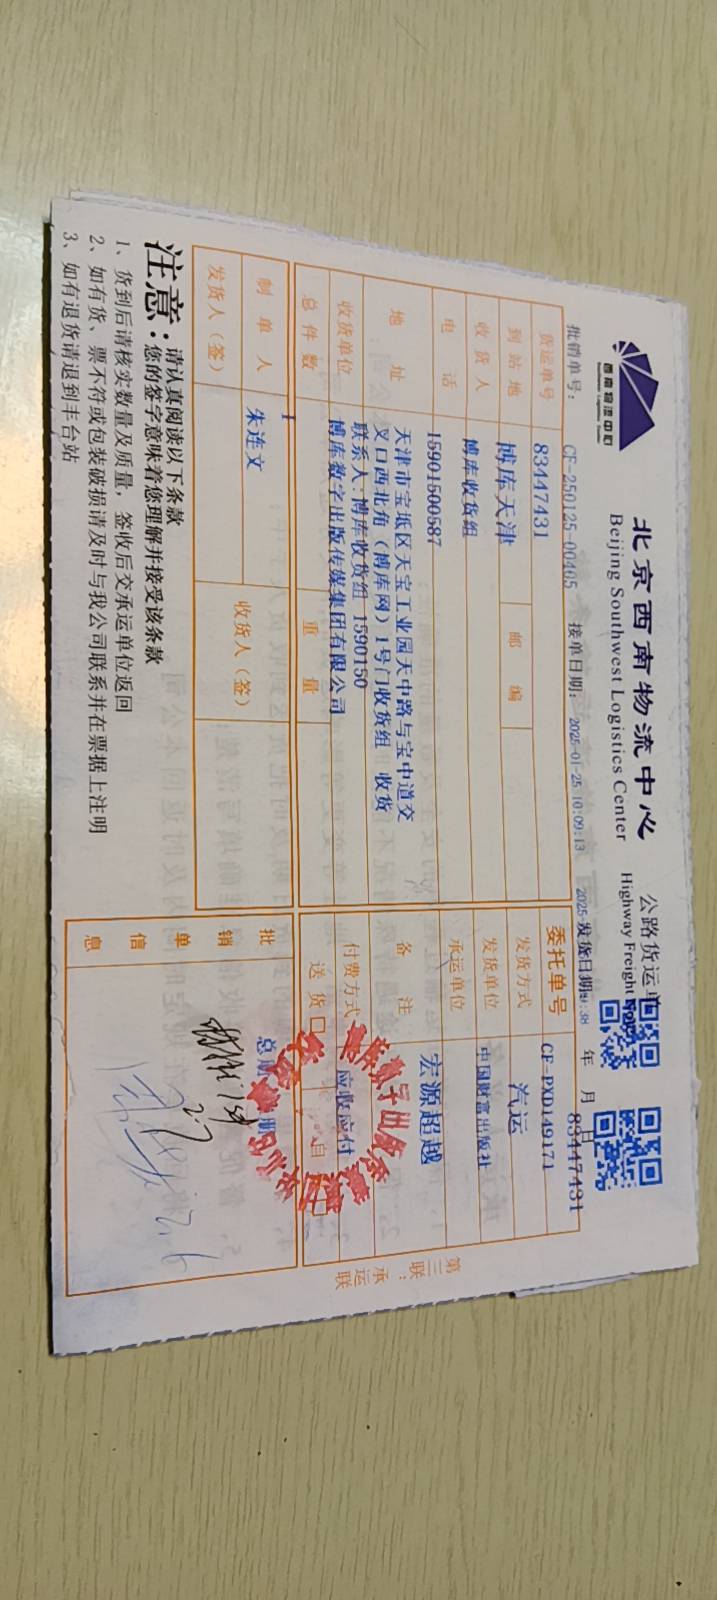 西南物流中心
北京西南物流中心
Beijing Southwest Logistics Center
公路货运单
Highway Freight
批销单号： CF-250125-00405 接单日期： 2025-01-25 10:09:13 发货日期: 年 月 日
83447431
货运单号 83447431 委托单号 CF-PXD149171
到站地 博库天津 邮编 发货方式 汽运
收货人 博库收货组 发货单位 中国财富出版社
电话 15901500587 承运单位 宏源超越
地址 天津市宝坻区天宝工业园天中路与宝中道交
叉口西北角（博库网）1号门收货组 收货
联系人:博库收货组 1590150
备注
收货单位 博库数字出版传媒集团有限公司 付费方式 应收应付
总件数 1 重量 送货□ 自
制单人 朱连文 收货人（签）
发货人（签）
批销单信息
第三联：承运联
注意：请认真阅读以下条款
您的签字意味着您理解并接受该条款
1、货到后请核实数量及质量，签收后交承运单位返回
2、如有货、票不符或包装破损请及时与我公司联系并在票据上注明
3、如有退货请退到丰台站
2.7
2.6